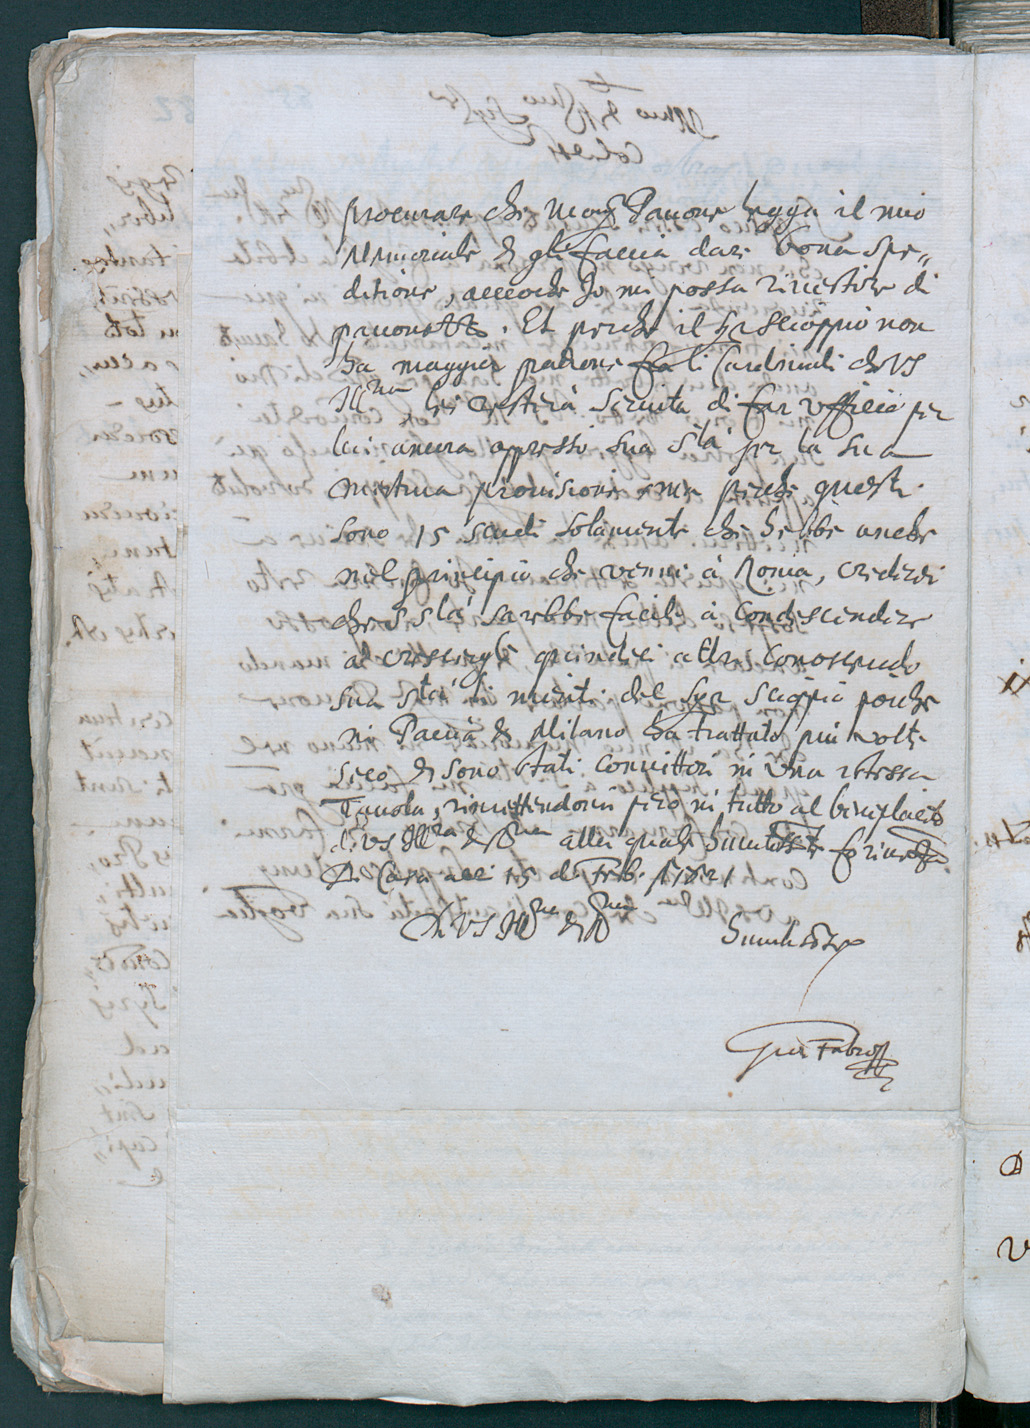 procurare che Mons.r Pavone legga il mio
Memoriale et gli faccia dare bona spe„
ditione, acciochè Io mi possa rivestire di
pavonazzo. Et perche il S.r Scioppio non
ha maggior padrone fra li Cardinali che VS
Ill.ma lei resterà servita di far ufficio per
lui ancora appresso Sua S.tà per la sua
mestrua provisione perche questi
sono 15 scudi solamente che hebbe anche
nel principio che venne à Roma, crederei
che S S.tà sarebbe facile a condescendere
al crescergli quindeci altri conoscendo
sua S.tà li meriti del Sig.r Scioppio poiche
in Pavia et Milano ha trattato più volte
seco et sono stati convittori in una istessa
Tavola, rimettendomi però in tutto al beneplacito
di VS Ill.ma et R.ma alla quale humilm.te
Di Casa alli 15 di Feb. 1621
Di VS Ill.ma et R.ma
Humiliss.o
Gio Fabro